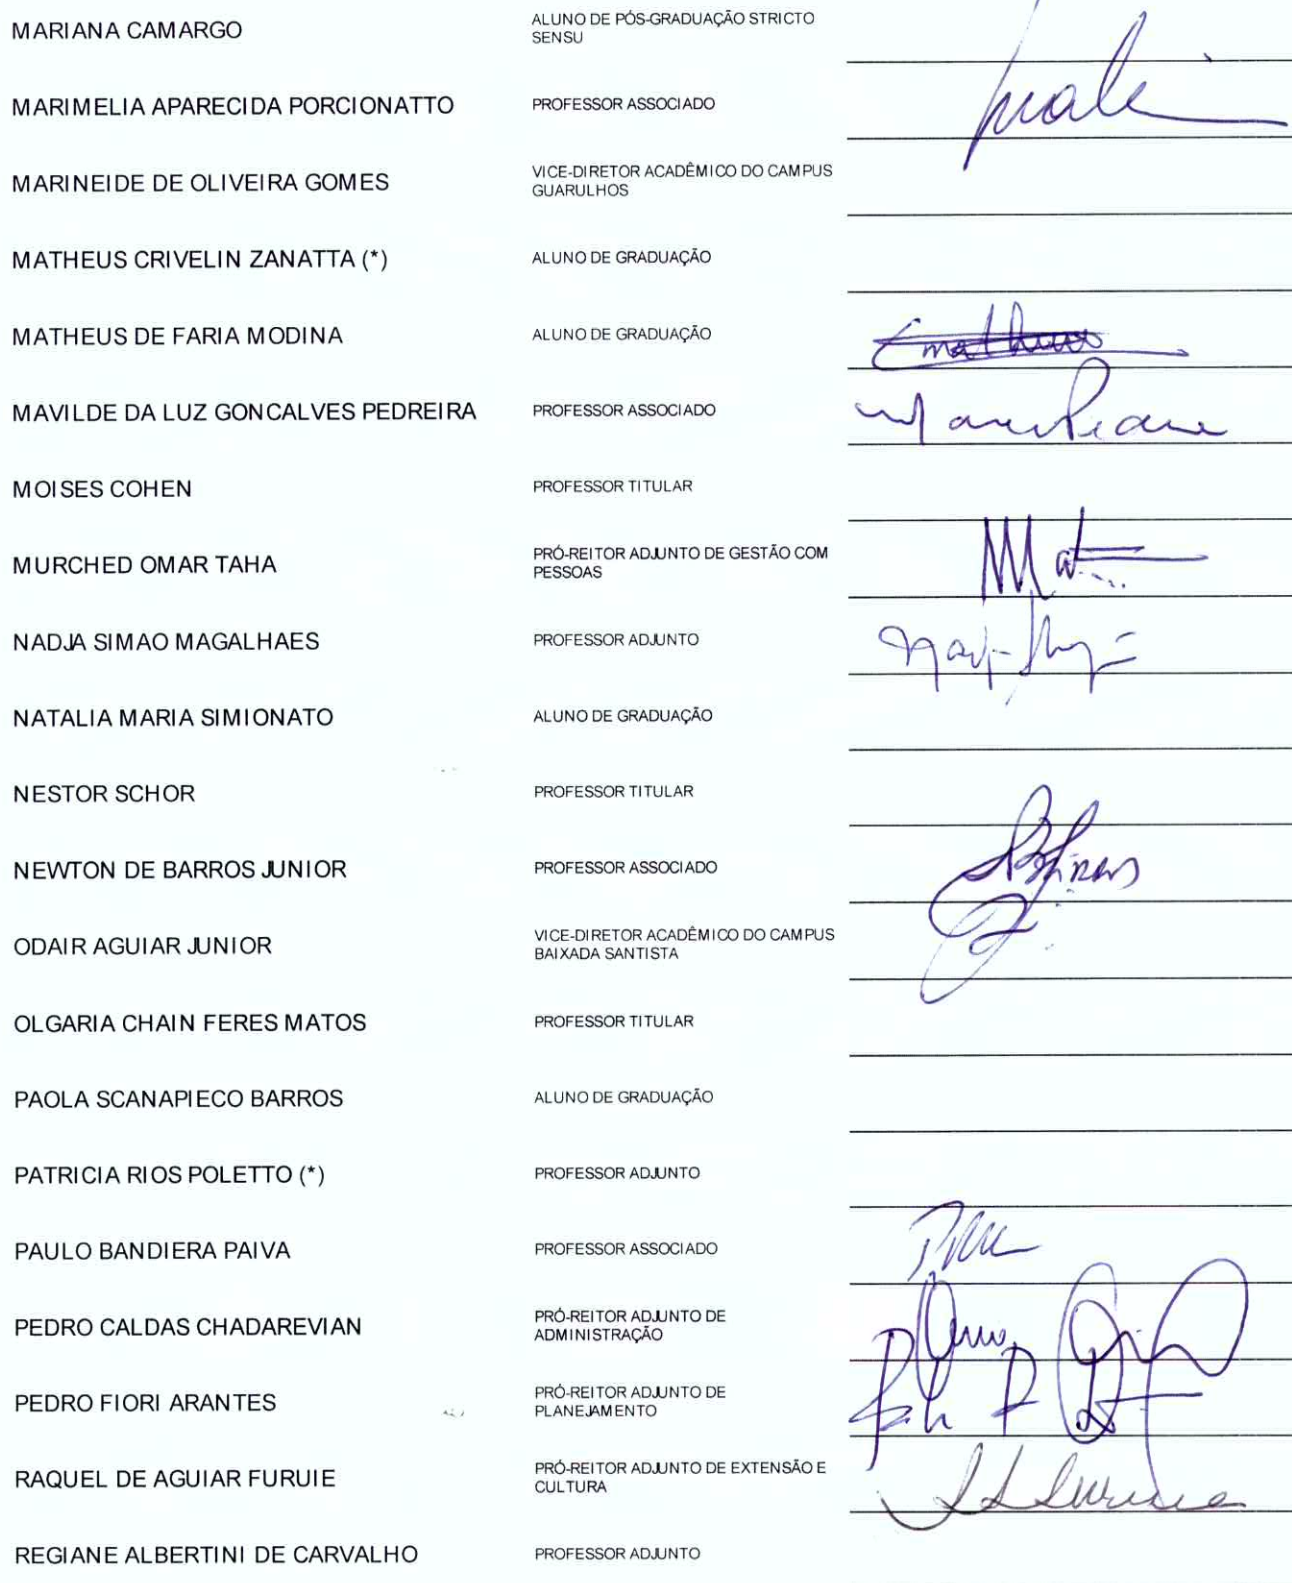 MARIANA CAMARGO
ALUNO DE PÓS-GRADUAÇÃO STRICTO
SENSU
MARIMELIA APARECIDA PORCIONATTO
PROFESSOR ASSOCIADO
MARINEIDE DE OLIVEIRA GOMES
VICE-DIRETOR ACADÊMICO DO CAMPUS
GUARULHOS
MATHEUS CRIVELIN ZANATTA (*)
ALUNO DE GRADUAÇÃO
MATHEUS DE FARIA MODINA
ALUNO DE GRADUAÇÃO
MAVILDE DA LUZ GONCALVES PEDREIRA
PROFESSOR ASSOCIADO
MOISES COHEN
PROFESSOR TITULAR
MURCHED OMAR TAHA
PRÓ-REITOR ADJUNTO DE GESTÃO COM
PESSOAS
NADJA SIMAO MAGALHAES
PROFESSOR ADJUNTO
NATALIA MARIA SIMIONATO
ALUNO DE GRADUAÇÃO
NESTOR SCHOR
PROFESSOR TITULAR
NEWTON DE BARROS JUNIOR
PROFESSOR ASSOCIADO
ODAIR AGUIAR JUNIOR
VICE-DIRETOR ACADÊMICO DO CAMPUS
BAIXADA SANTISTA
OLGARIA CHAIN FERES MATOS
PROFESSOR TITULAR
PAOLA SCANAPIECO BARROS
ALUNO DE GRADUAÇÃO
PATRICIA RIOS POLETTO (*)
PROFESSOR ADJUNTO
PAULO BANDIERA PAIVA
PROFESSOR ASSOCIADO
PEDRO CALDAS CHADAREVIAN
PRÓ-REITOR ADJUNTO DE
ADMINISTRAÇÃO
PEDRO FIORI ARANTES
PRÓ-REITOR ADJUNTO DE
PLANEJAMENTO
RAQUEL DE AGUIAR FURUIE
PRÓ-REITOR ADJUNTO DE EXTENSÃO E
CULTURA
REGIANE ALBERTINI DE CARVALHO
PROFESSOR ADJUNTO